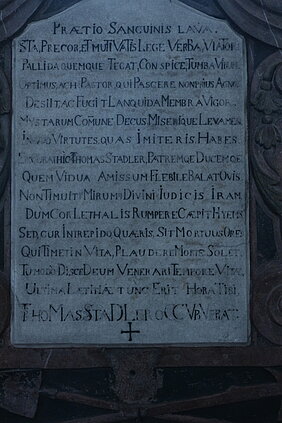 PRÆTIO SANGUINIS LAVA.
STA, PRECOR, ET MUTI VATIS LEGE VERBA, VIATOR
PALLIDA QUEMQUE TEGAT, CONSPICE, TUMBA VIRUM.
OPTIMUS, ACH! PASTOR, QUI PASCERE NON PIUS AGNOS
DESIIT, AC FUGIT LANQUIDA MEMBRA VIGOR.
MYSTARUM COMUNE DECUS MISERIQUE LEVAMEN
VIRTUTES, QUAS IMITERIS, HABES.
THOMAS STADLER, PATREMQE DUCEMQE
QUEM VIDUA AMISSUM FLEBILE BALAT OVIS.
NON TIMUIT MIRUM! DIVINI IUDICIS IRAM,
DUM COR LETHALIS RUMPERE CÆPIT HYEMS
SED, CUR INTREPIDO QUÆRIS, SIT MORTUUS ORE?
QUI TIMET IN VITA, PLAUDERE MORTE SOLET.
TU MODO DISCE DEUM VENERARI TEMPORE VITÆ,
ULTIMA LÆTITIÆ TUNC ERIT HORA TIBI.
THOMAS STADLER OCCUBUERAT.